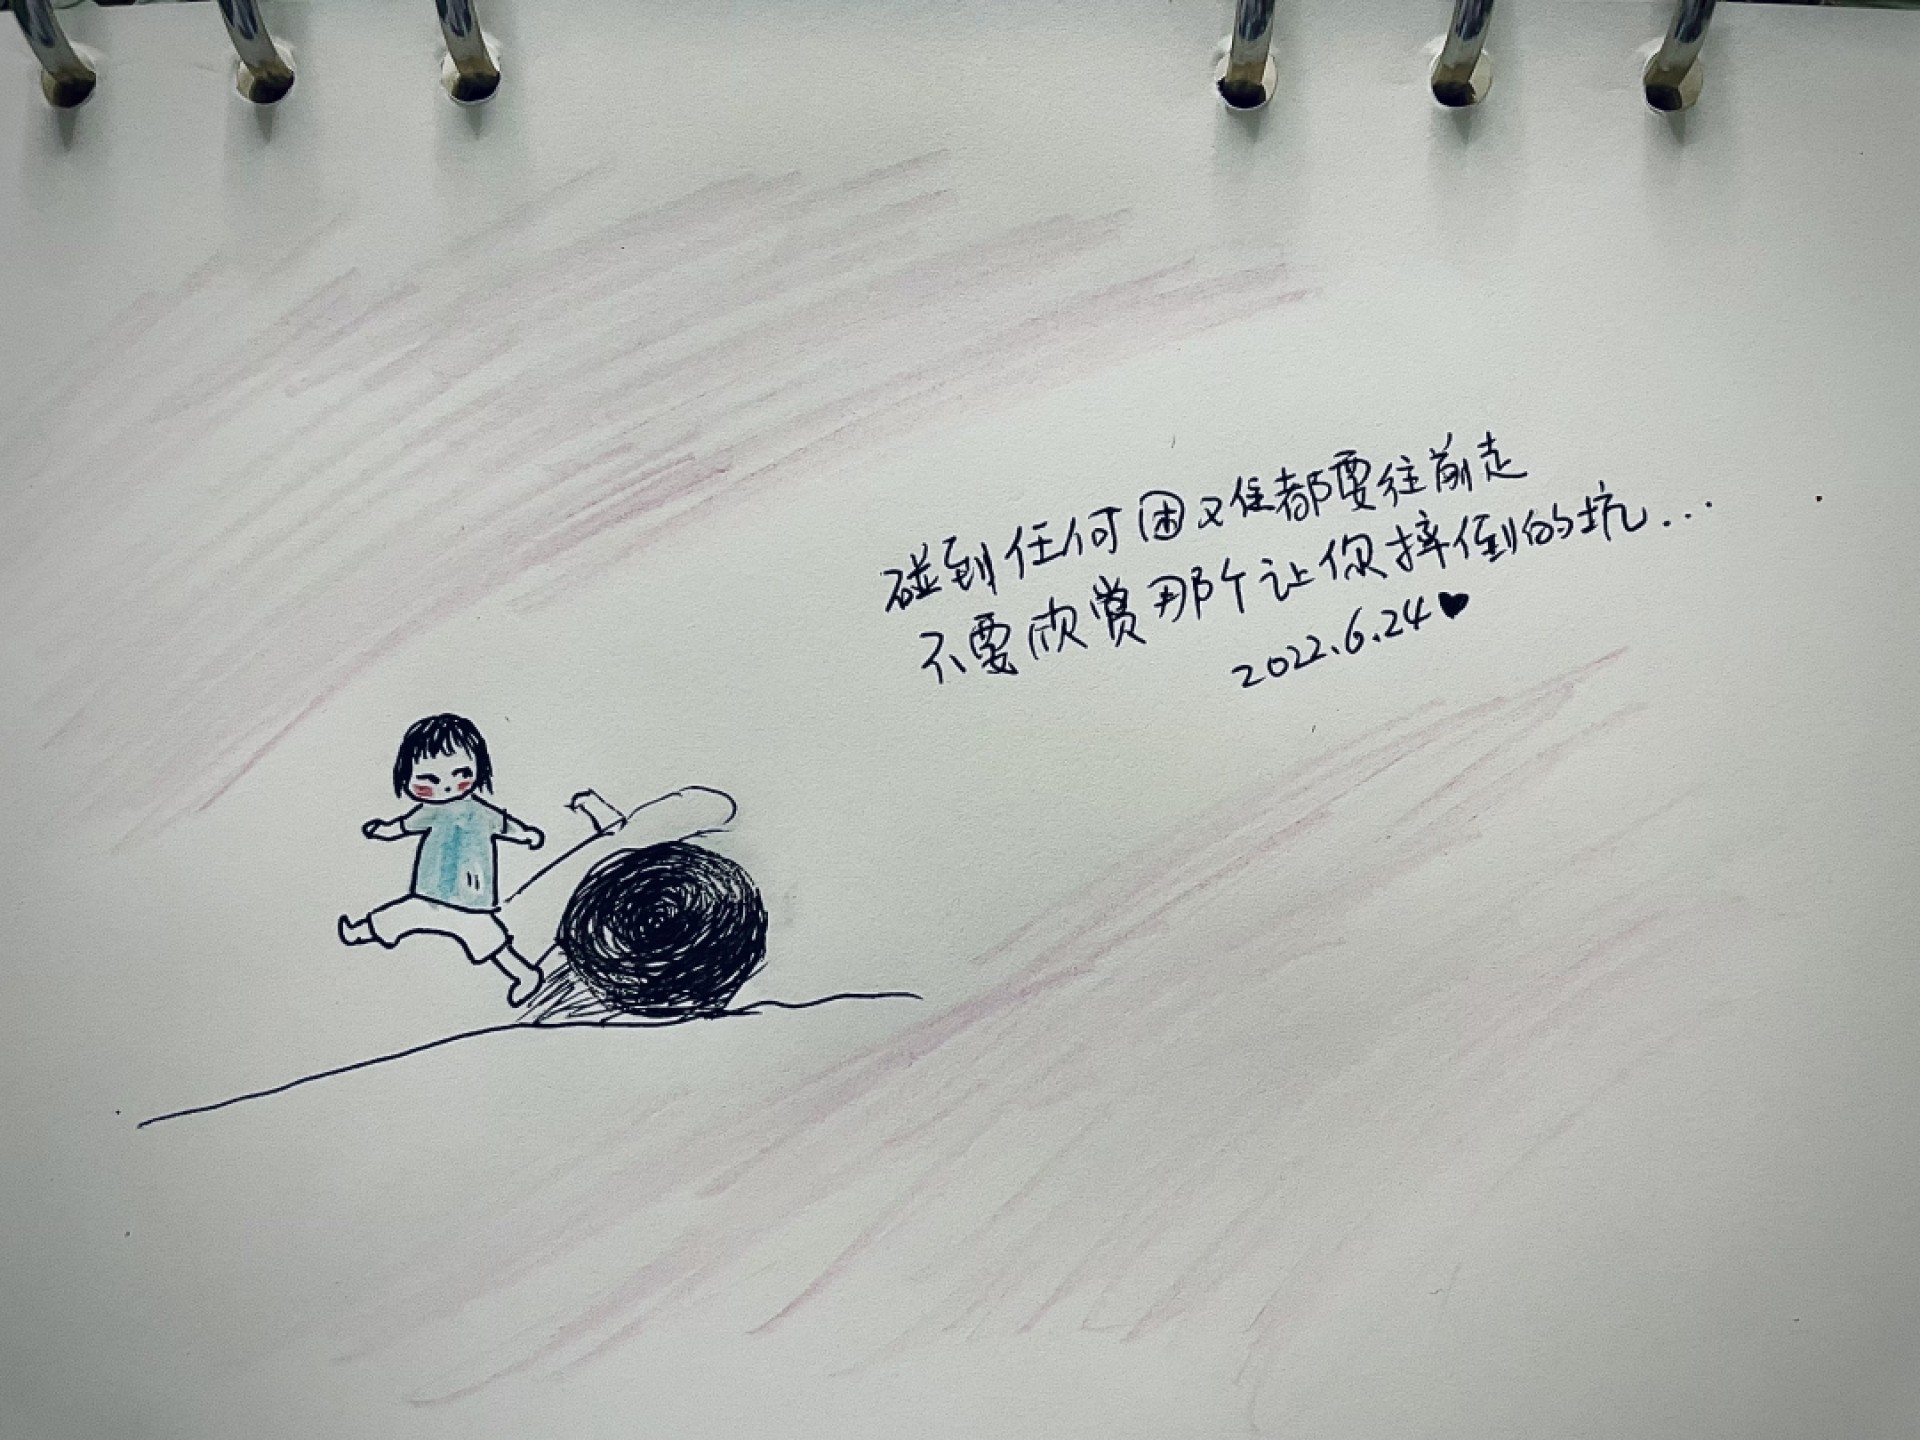 碰到任何困难都要往前走
不要欣赏那个让你摔倒的坑...
2022.6.24♥